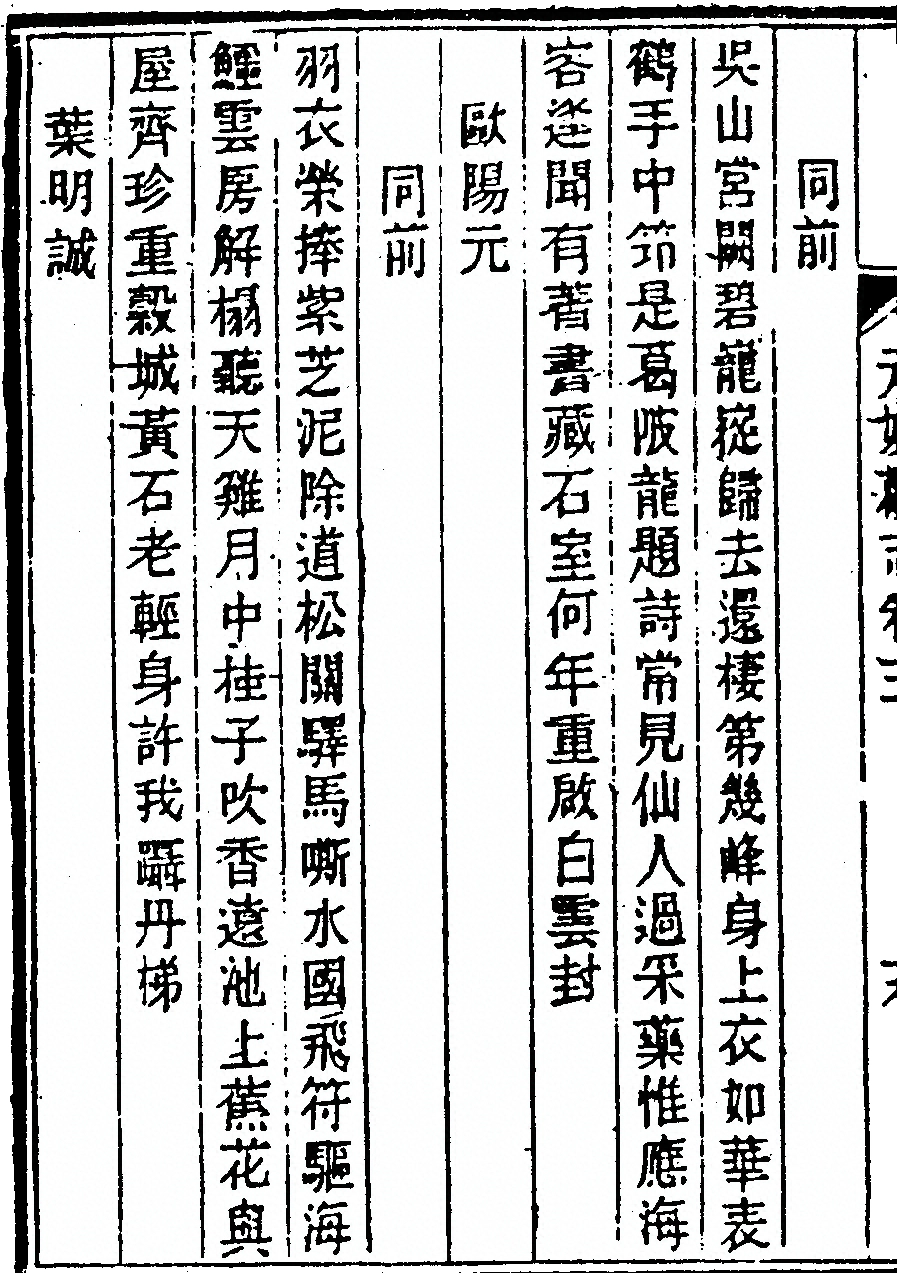 同前
吳山宮闕碧巃嵷歸去還棲第幾峰身上衣如華表
鶴手中笻是葛陂龍題詩常見仙人過采藥惟應海
客逢聞有著書藏石室何年重啟白雲封
歐陽元
同前
羽衣榮捧紫芝泥除道松關驛馬嘶水國飛符驅海
鱷雲房解榻聽天雞月中桂子吹香遠池上蕉花與
屋齊珍重穀城黃石老輕身許我躡丹梯
葉明誠